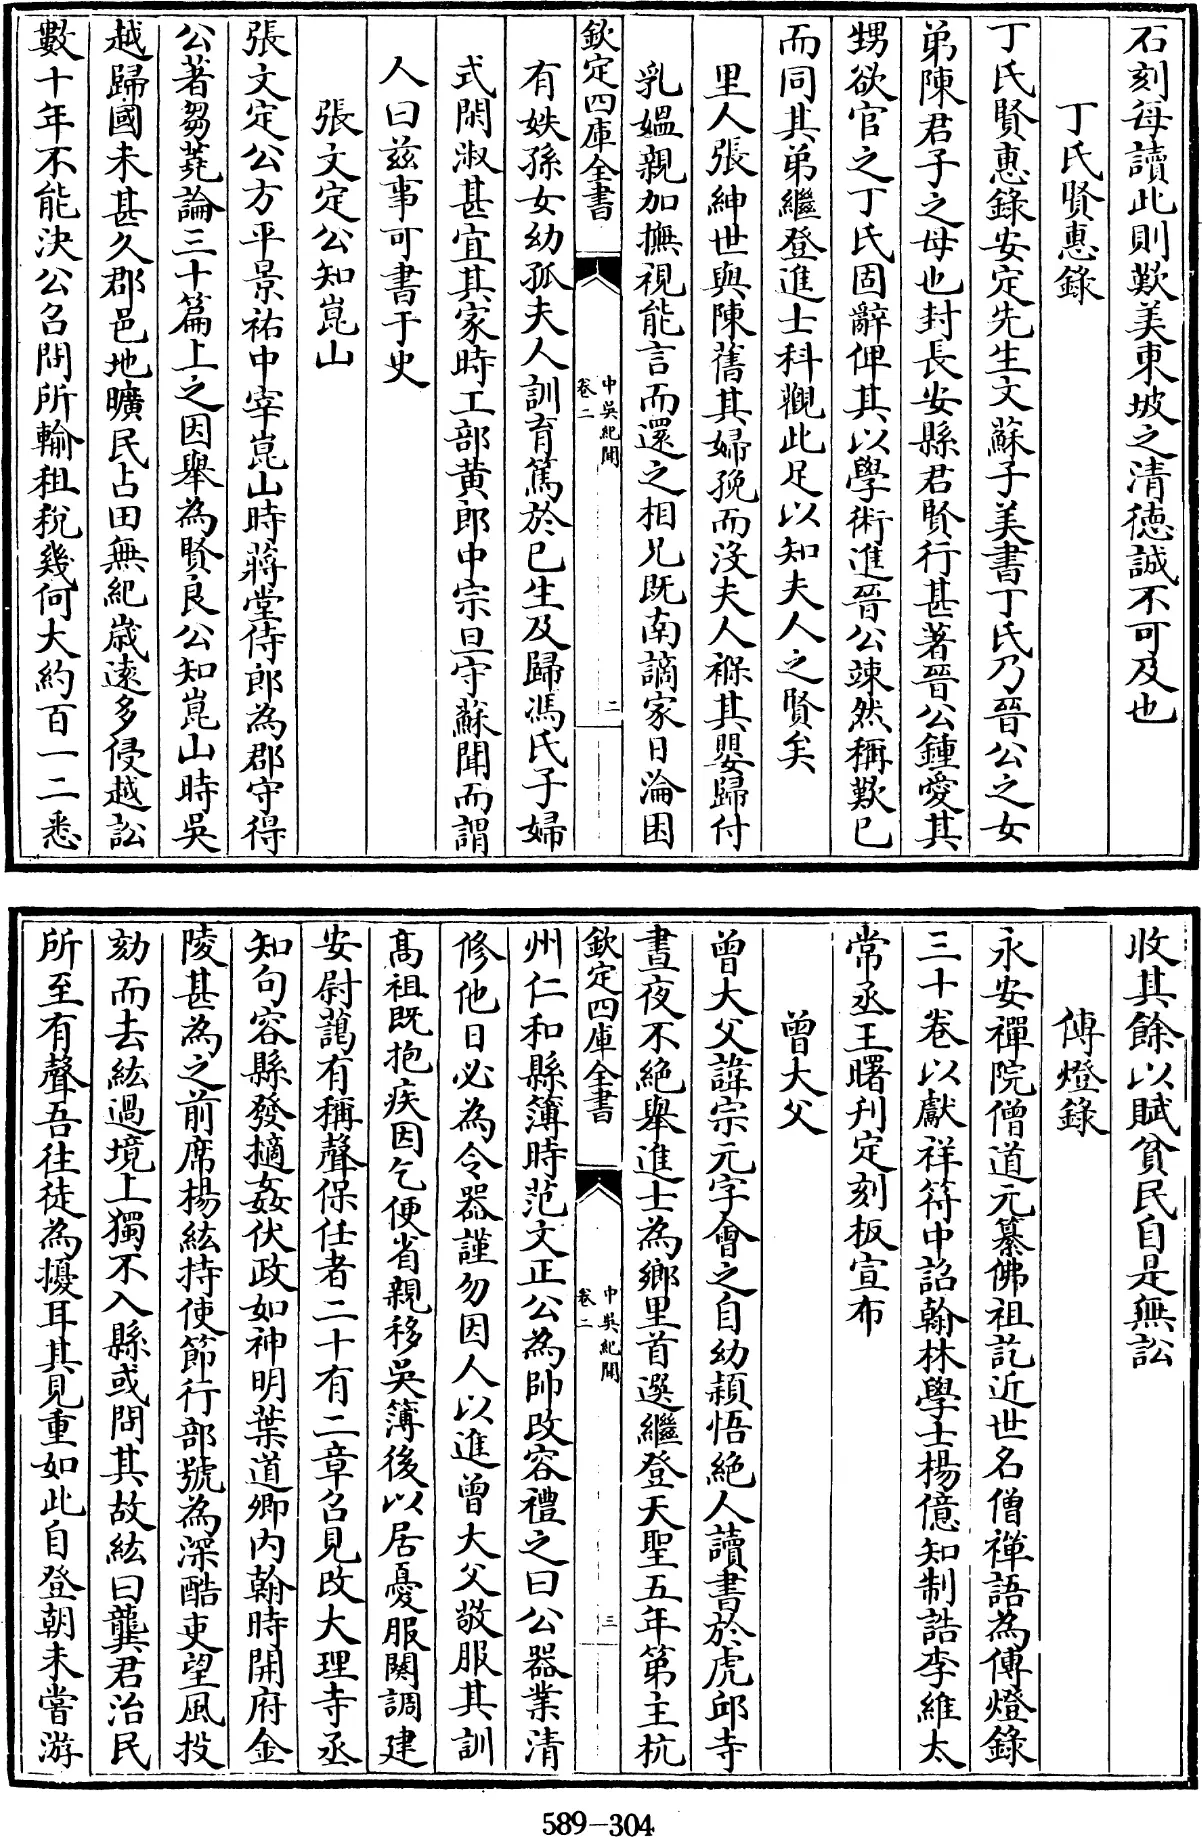 石刻每讀此則歎美東坡之清德誠不可及也
丁氏賢惠錄
丁氏賢惠錄安定先生文蘇子美書丁氏乃晉公之女
弟陳君子之母也封長安縣君賢行甚著晉公鍾愛其
甥欲官之丁氏固辭俾其以學術進晉公竦然稱歎已
而同其弟繼登進士科觀此足以知夫人之賢矣
里人張紳世與陳舊其婦娩而沒夫人褓其嬰歸付
乳媼親加撫視能言而還之相兄既南謫家日淪困
欽定四庫全書
中吳紀聞
卷二
二
有姪孫女幼孤夫人訓育篤於已生及歸馮氏子婦
式閑淑甚宜其家時工部黃郎中宗旦守蘇聞而謂
人曰茲事可書于史
張文定公知崑山
張文定公方平景祐中宰崑山時蔣堂侍郎為郡守得
公著芻蕘論三十篇上之因舉為賢良公知崑山時吳
越歸國未甚久郡邑地曠民占田無紀歲遠多侵越訟
數十年不能決公召問所輸租稅幾何大約百一二悉
收其餘以賦貧民自是無訟
傳燈錄
永安禪院僧道元纂佛祖訖近世名僧禪語為傳燈錄
三十卷以獻祥符中詔翰林學士楊億知制誥李維太
常丞王曙刋定刻板宣布
曾大父
曾大父諱宗元字會之自幼頴悟絕人讀書於虎邱寺
晝夜不絕舉進士為鄉里首選繼登天聖五年第主杭
欽定四庫全書
中吳紀聞
卷二
三
州仁和縣簿時范文正公為帥改容禮之曰公器業清
修他日必為令器謹勿因人以進曾大父敬服其訓
高祖既抱疾因乞便省親移吳簿後以居憂服闋調建
安尉藹有稱聲保任者二十有二章召見改大理寺丞
知句容縣發擿姦伏政如神明葉道卿內翰時開府金
陵甚為之前席楊紘持使節行部號為深酷吏望風投
劾而去紘過境上獨不入縣或問其故紘曰龔君治民
所至有聲吾往徒為擾耳其見重如此自登朝未嘗游
589-304